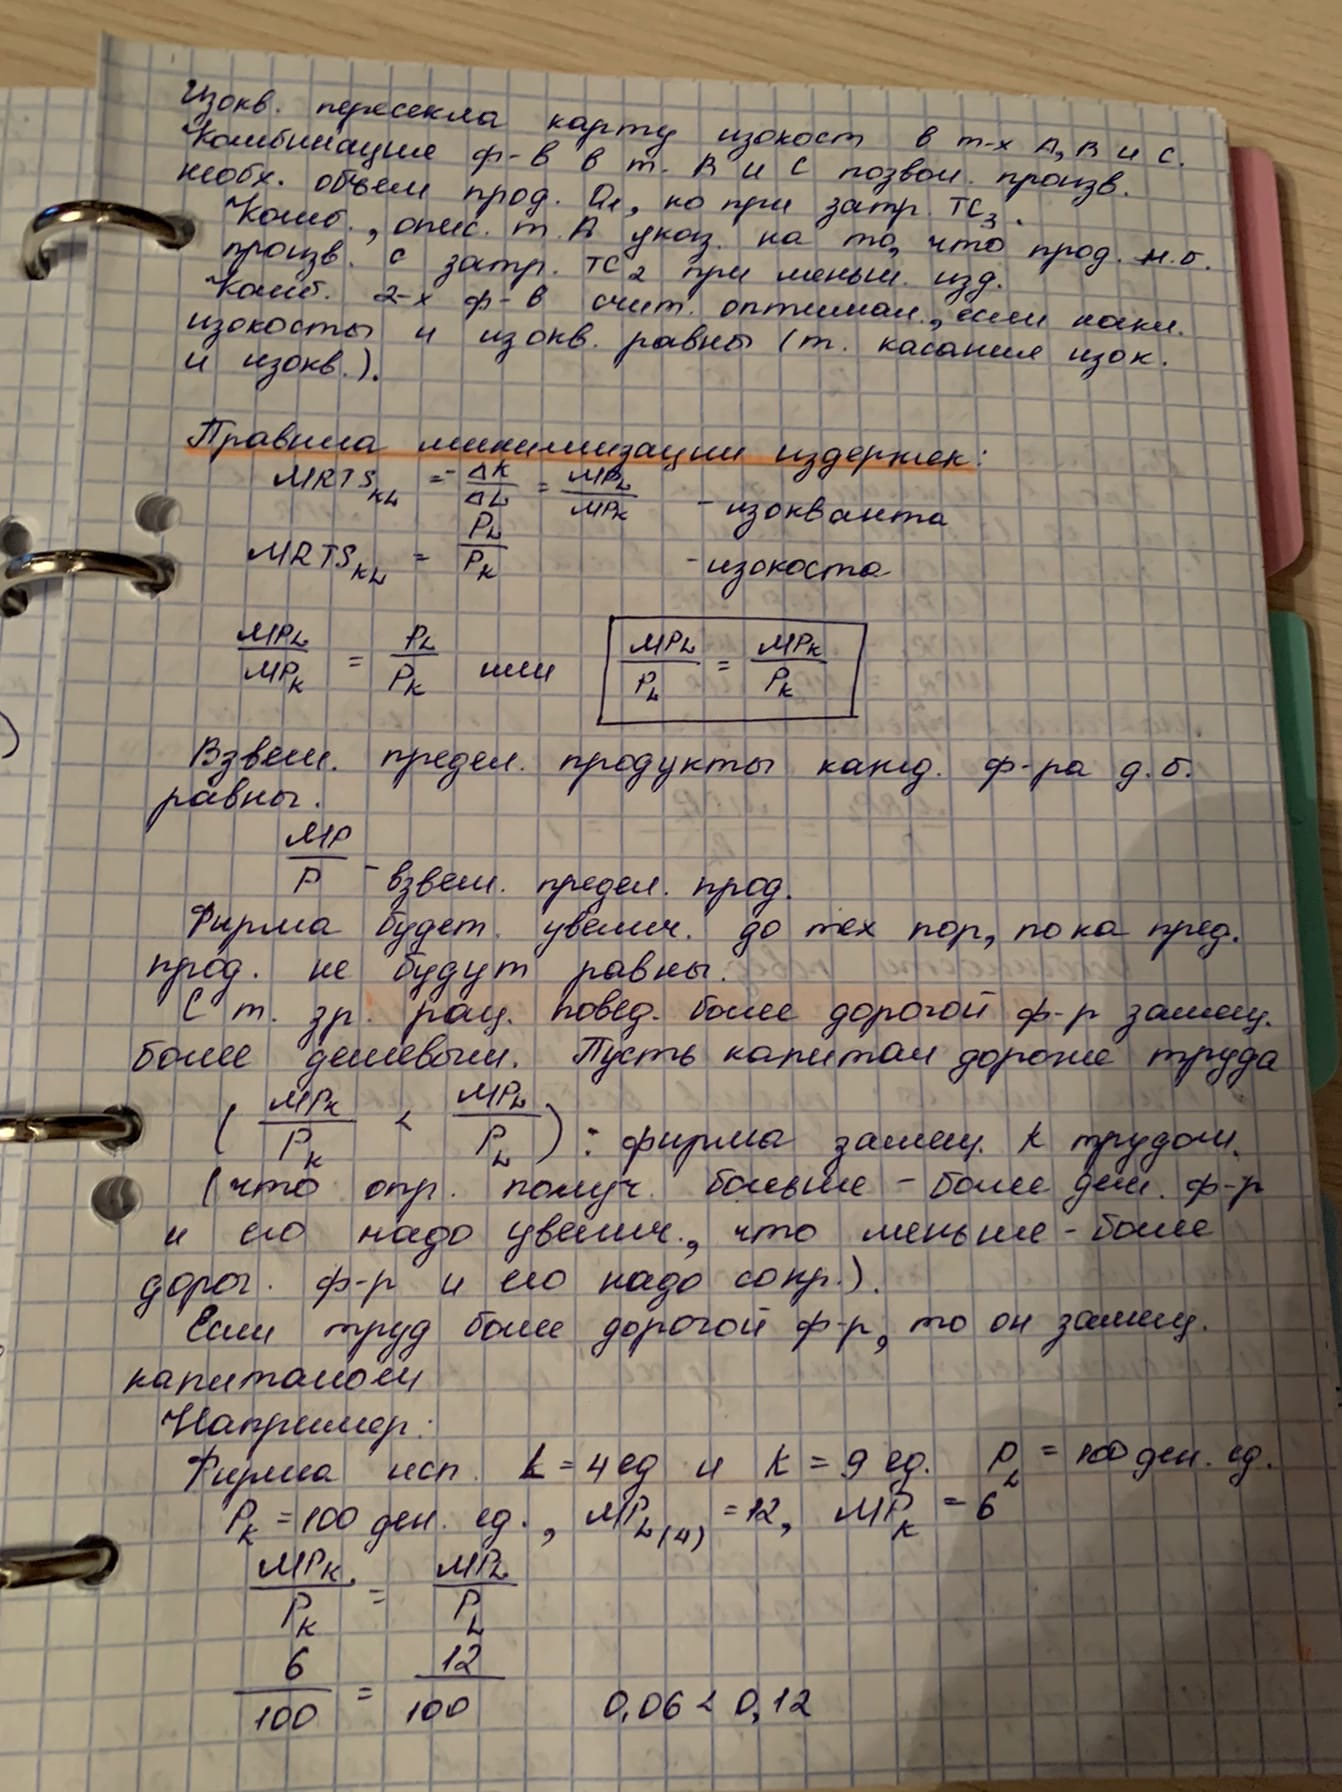 Изокв. пересекла карту изокост в т-х А, В и С.
Комбинация ф-в в т. В и С позвол. произв.
необх. объем прод. Q₁, но при затр. TC₃.
Комб., опис. т. А указ. на то, что прод. м.б.
произв. с затр. TC₂ при меньш. изд.
Комб. 2-х ф-в счит. оптимал., если накл.
изокосты и изокв. равны (т. касания изок.
и изокв.).
Правила минимизации издержек:
MRTS_KL = -ΔK/ΔL = MP_L/MP_K - изокванта
MRTS_KL = P_L/P_K - изокоста
MP_L/MP_K = P_L/P_K или MP_L/P_L = MP_K/P_K
Взвеш. предел. продукты кажд. ф-ра д.б.
равны.
MP/P - взвеш. предел. прод.
Фирма будет. увелич. до тех пор, пока пред.
прод. не будут равны.
С т. зр. рац. повед. более дорогой ф-р замещ.
более дешевым. Пусть капитал дороже труда
(MP_K/P_K < MP_L/P_L): фирма замещ. K трудом.
(что опр. получ. больше - более деш. ф-р
и его надо увелич., что меньше - более
дорог. ф-р и его надо сокр.).
Если труд более дорогой ф-р, то он замещ.
капиталом
Например:
Фирма исп. L = 4 ед и K = 9 ед. P_L = 100 ден. ед.
P_K = 100 ден. ед., MP_L(4) = 12, MP_K = 6
MP_K/P_K = MP_L/P_L
6/100 = 12/100 0,06 < 0,12